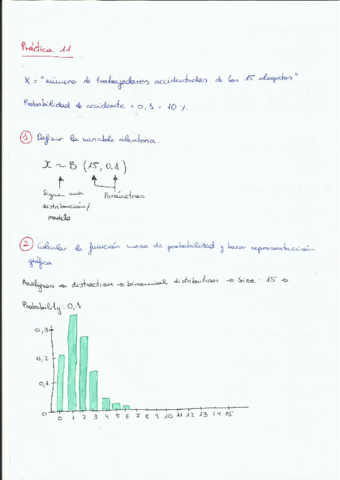 Práctica 11
X = "número de trabajadores accidentados de los 15 elegidos"
Probabilidad de accidente = 0,1 = 10 %.
1 Definir la variable aleatoria.
X ~ B (15, 0.1)
Sigue una Parámetros
distribución/
modelo
2 Calcular la función masa de probabilidad y hacer representación
gráfica
Analyses → distraction → binammial distribution → Size: 15 →
Probability: 0,1
0,3
0,2
0,1
0
0 1 2 3 4 5 6 7 8 9 10 11 12 13 14 15